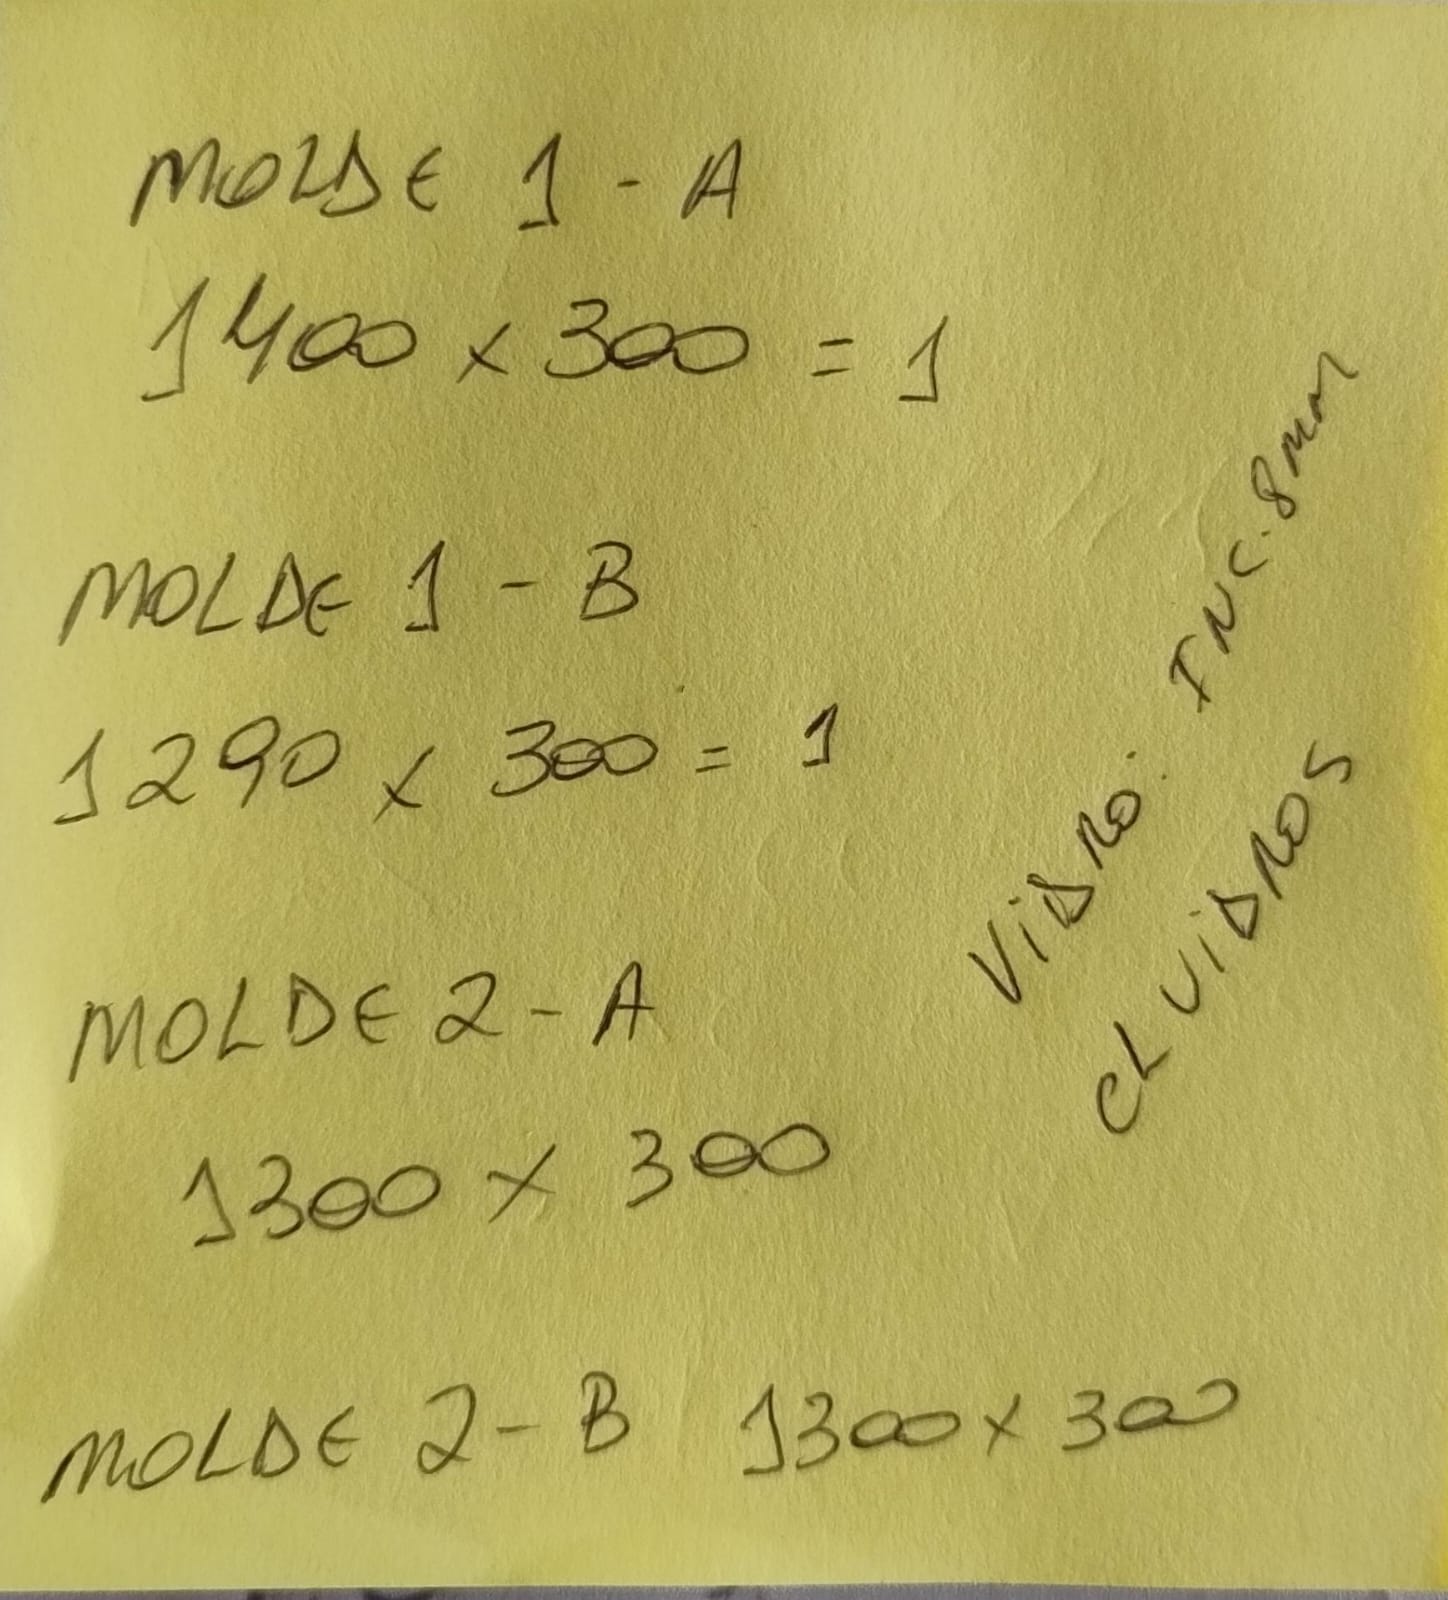 MOLDE 1 - A
1400 x 300 = 1
MOLDE 1 - B
1290 x 300 = 1
MOLDE 2 - A
1300 x 300
MOLDE 2 - B 1300 x 300
VIDRO: INC. 8mm
CL VIDROS